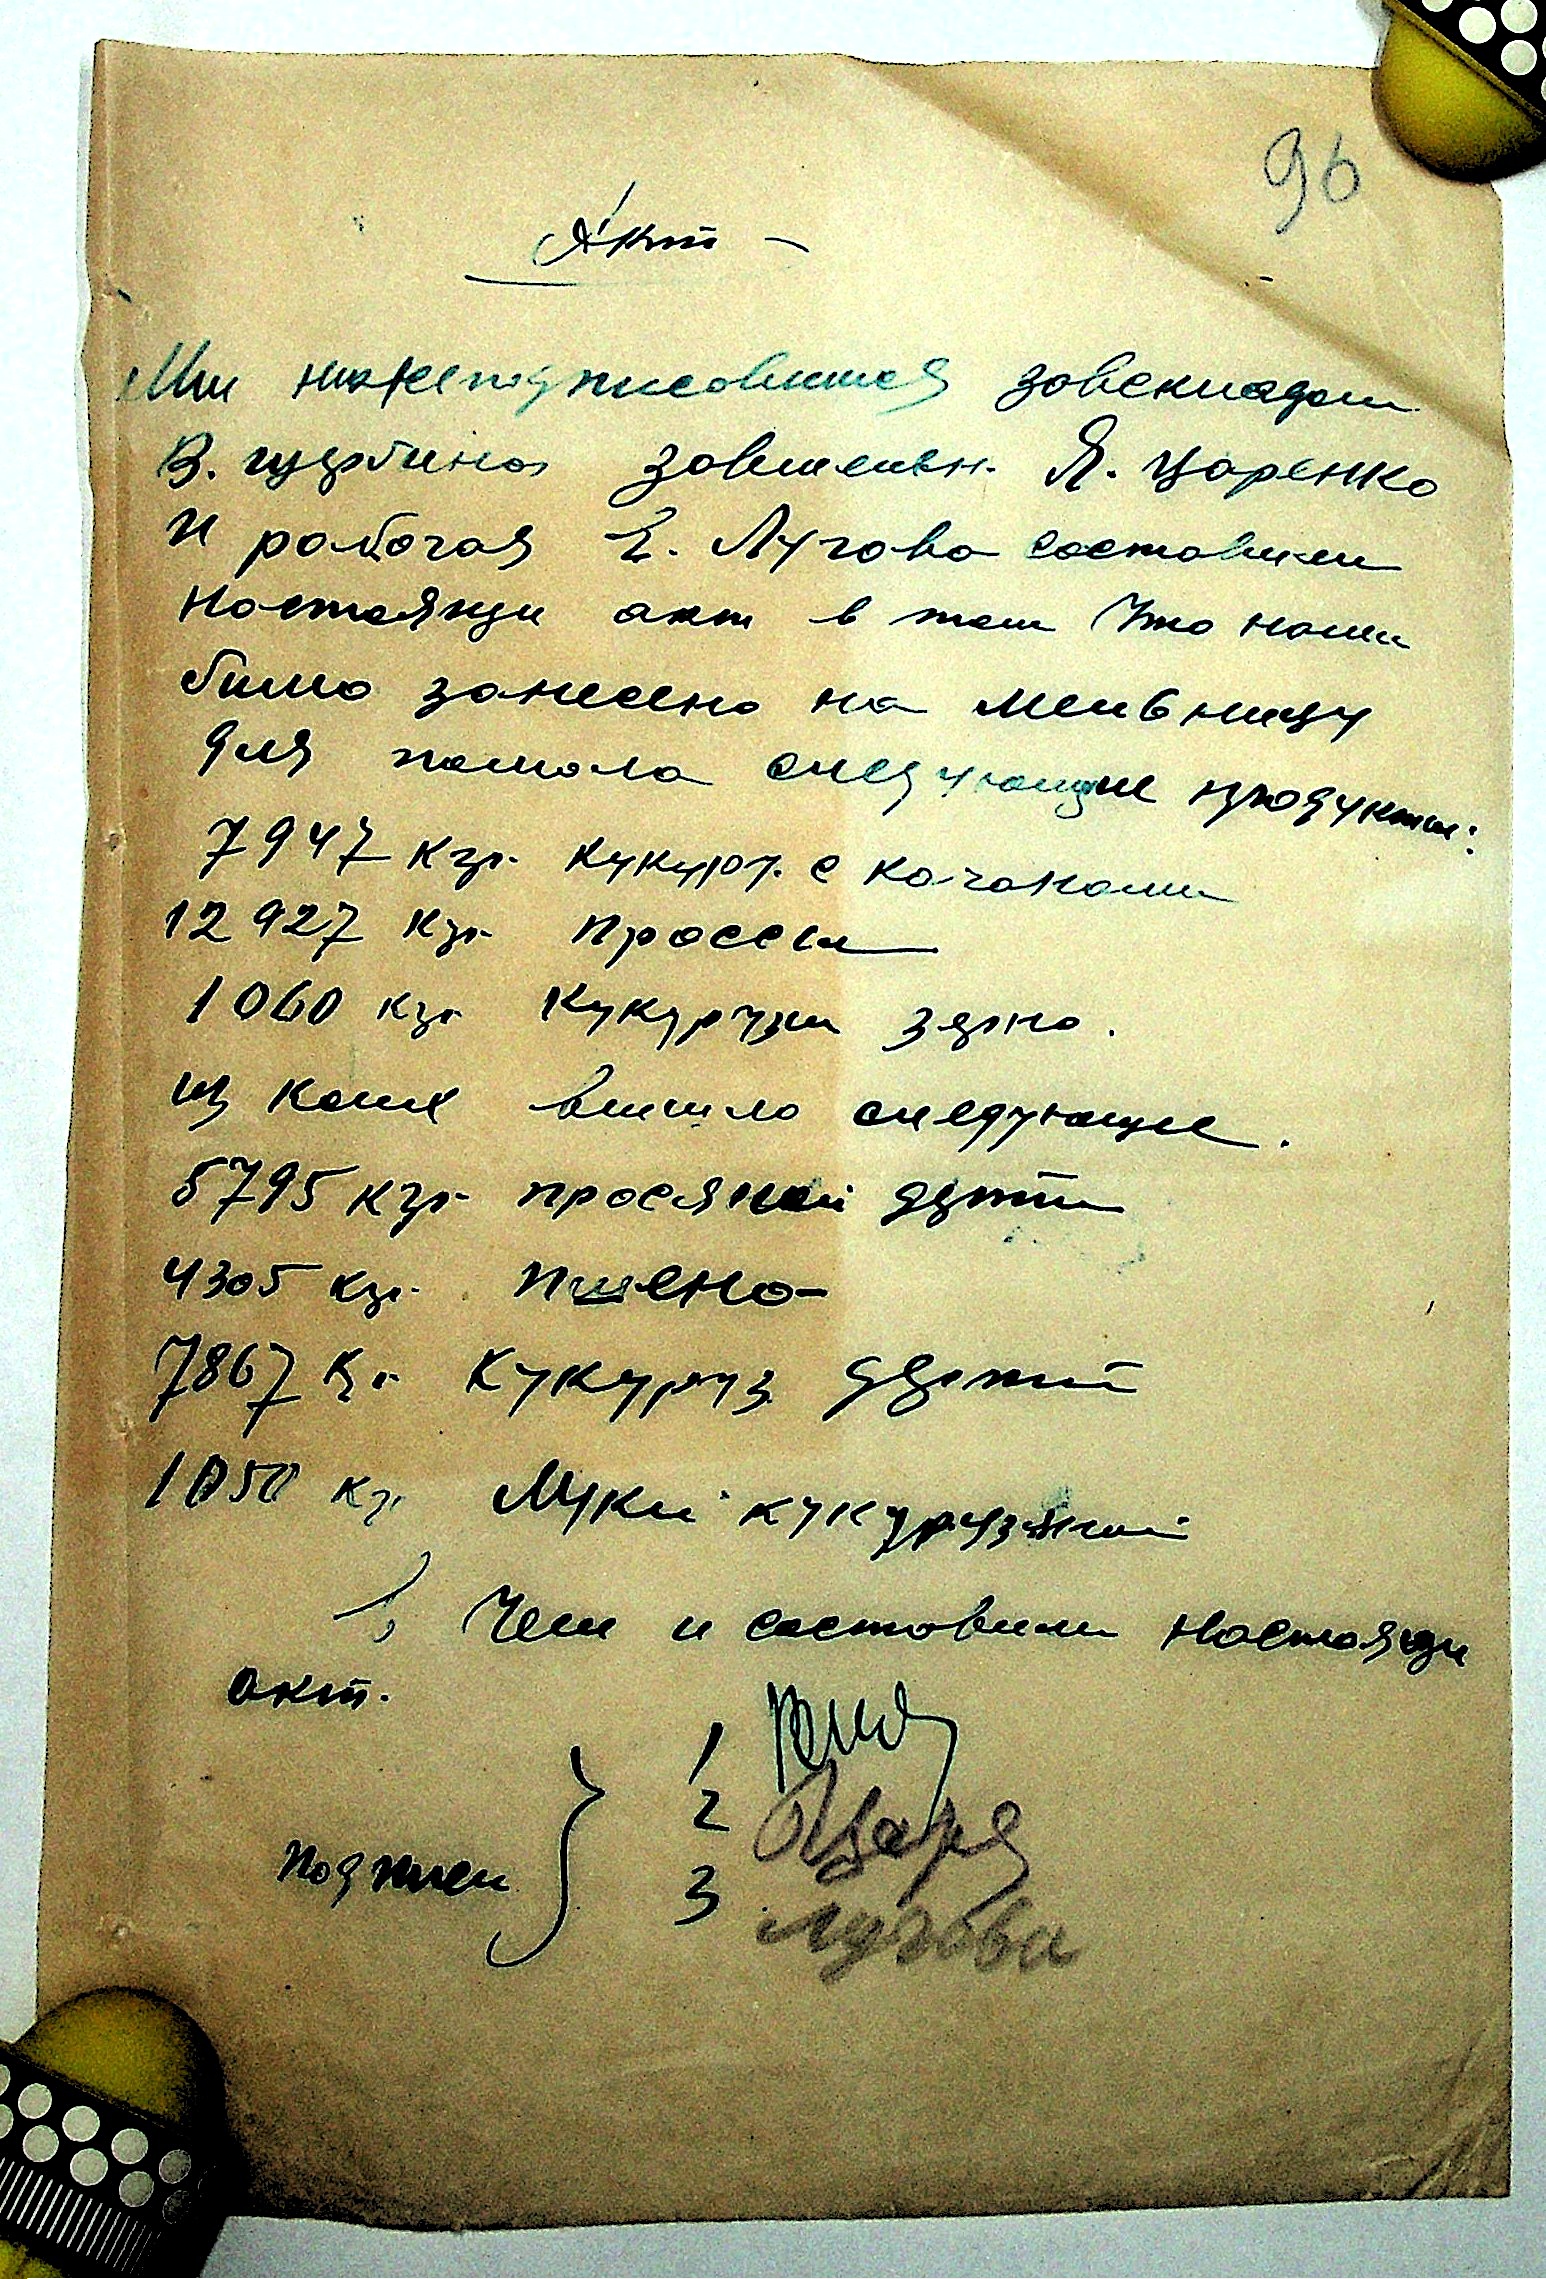 96
Акт -
Ми нижеподписовшиеся завскладом
В. Щербина завмельн. Я. Царенко
и рабочая Е. Лугова составили
Настоящи акт в том Что нами
било занесено на Мельницу
для помола следующие продукти:
7947 кгр. кукуруз. с качанами
12927 кгр. Проссы
1060 кгр. Кукурузи зерно.
из коих вишло следующие.
5795 кгр. просяной дерти
4305 кгр. Пшено-
7867 кг. Кукуруз. дертий
1050 кг. Муки кукурузяной
в Чем и составили настоящи
акт.
1
2 Царе
Подписи } 3 Лугова